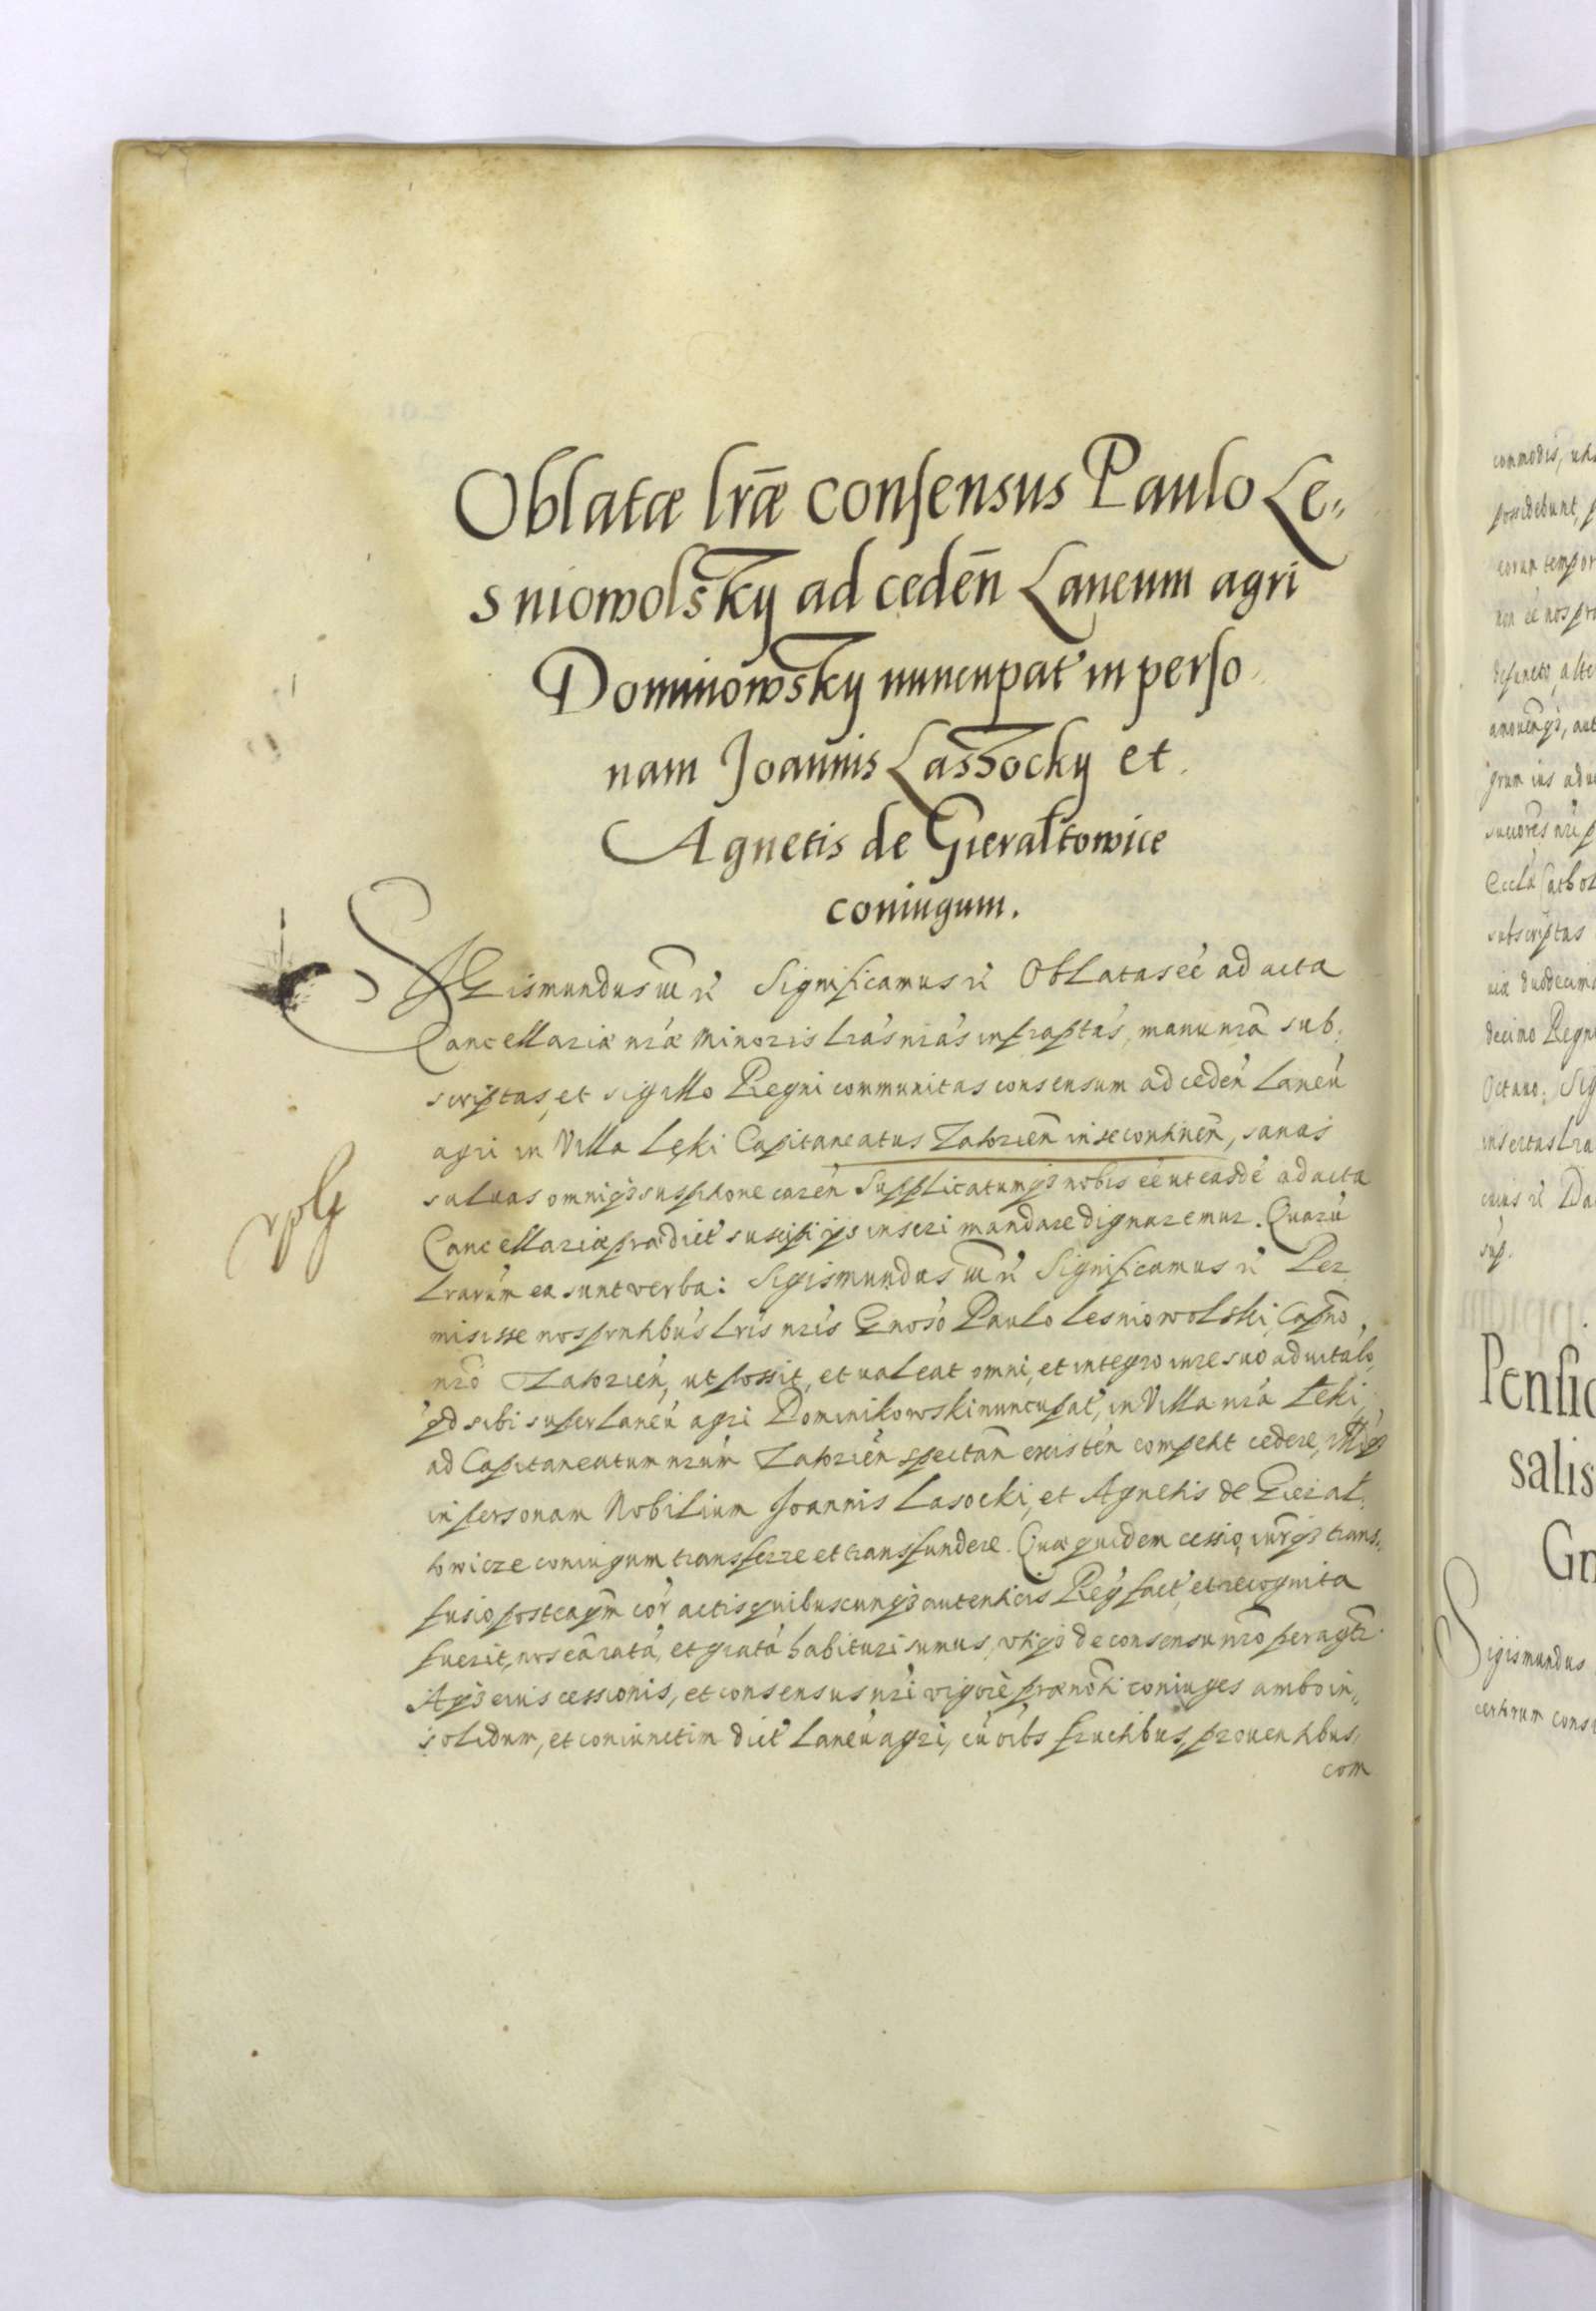 Oblatæ lrãe consensus Paulo Le„
sniowolsky ad cedẽn Laneum agri
Dominowsky nuncupat' in perso„
nam Joannis Lassocky et
Agnetis de Gieraltowice
coniugum.
SIGismundus III rc̃ Significamus rc̃ Oblatas eé ad acta
Cancellariæ nr̃æ Minoris lrás nrás infraptás, manu nrã sub„
scriptas, et sigillo Regni communitas consensum ad ceden̕ Laneũ
agri in Villa Lęki Capitaneatus Zatorien̄ in se continen̄, sanas
saluas omniqȝ suspitione caren̕ Supplicatumqȝ nobis eé ut easdé ad acta
Cancellariæ prædict' suscipi ijs inseri mandare dignaremur. Quarũ
Lrarum̕ ea sunt verba: Sigismundus III rc̃ Significamus rc̃ Per
misisse nos pntibus̕ Lris̕ nris̕ Gnoso̕ Paulo Lesniowolski, Capn̄o
nrõ Zatorien̕, ut possit, et ualeat omni, et integro iure suo aduitalo,
qd sibi super Laneũ agri Dominikowski nuncupat', in Villa nrã Łeki,
ad Capitaneatum nrum̕ Zatorien̕ spectan̄ existen̕ competit cedere,
in personam Nobilium Joannis Lasocki, et Agnetis de Gieral„
towicze coniugum transferre et transfundere. Quæ quidem cessio, iurisqȝ trans„
fusio, posteaqm̄ cor̕ actis quibuscunqȝ autenticis Regn̕ fact', et recognita
fuerit, nos eã ratã, et gratã habituri sumus, vtiqȝ de consensu nrõ peractã.
Atqȝ eius cessionis, et consensus nri̕ vigore prænõti coniuges ambo in„
solidum, et coniunctim dict' Laneũ agri, cũ oĩbs fructibus, prouentibus,
com
commodis,
possidebunt,
eorum tempor
non eé nos pro
defuncto, alte
grum ius
Decimo Regni
Octauo. Sig
insertas Lra
Pensio
salis
Gn
Sigismundus